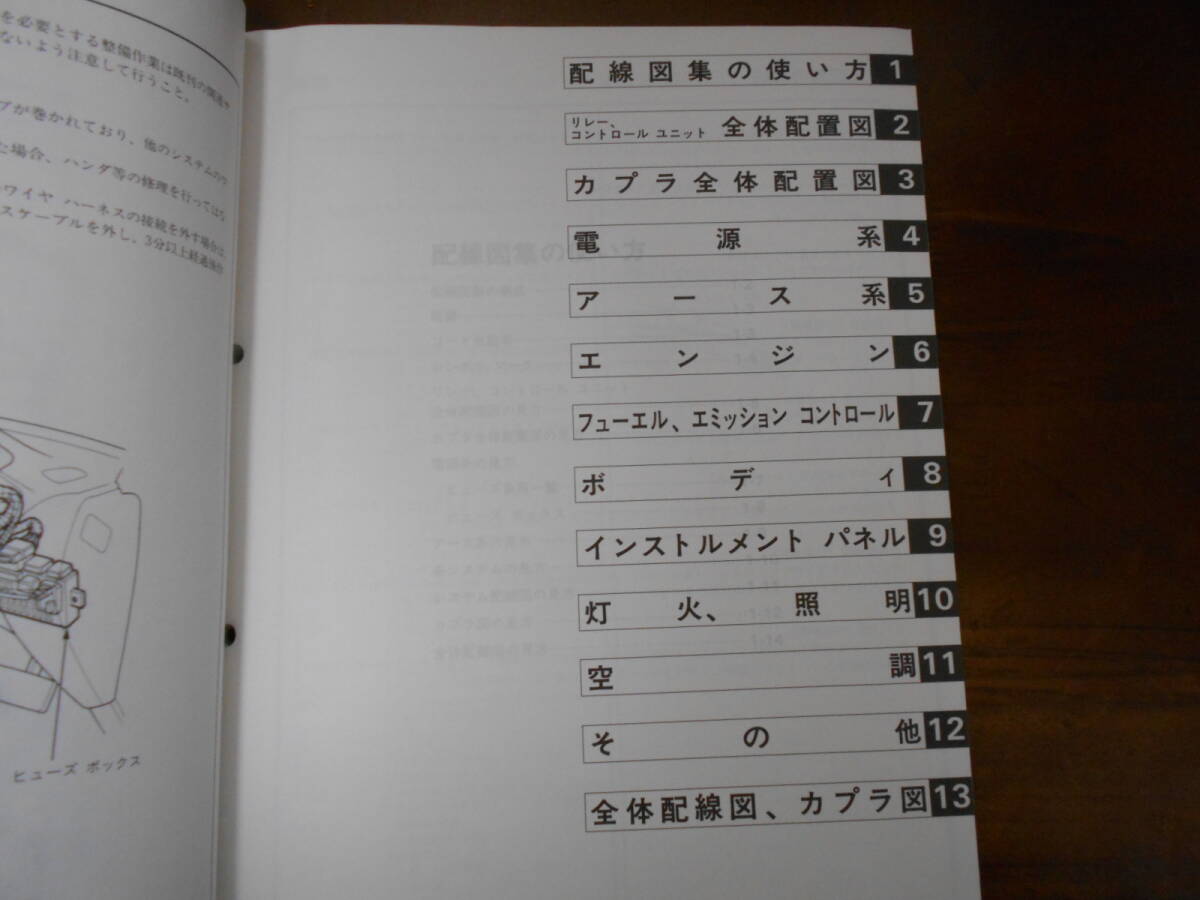 を必要とする整備作業は既刊の関連や
ないよう注意して行うこと。
プが巻かれており、他のシステムのワ
た場合、ハンダ等の修理を行ってはな
ワイヤ ハーネスの接続を外す場合は、
スケーブルを外し、3分以上経過後作
ヒューズ ボックス
配線図集の使い方 1
リレー、
コントロール ユニット 全体配置図 2
カプラ全体配置図 3
電源系 4
アース系 5
エンジン 6
フューエル、エミッション コントロール 7
ボディ 8
インストルメント パネル 9
灯火、照明 10
空調 11
その他 12
全体配線図、カプラ図 13
配線図集の使い方